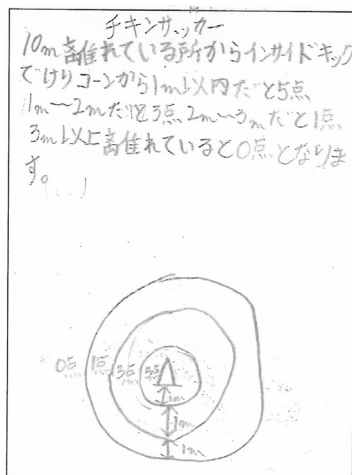 チキンサッカー
10m離れている所からインサイドキック
でけりコーンから1m以内だと5点
1m〜2mだと3点 2m〜3mだと1点
3m以上離れていると0点となりま
す。
0点 1点 3点 5点
1m
1m
1m